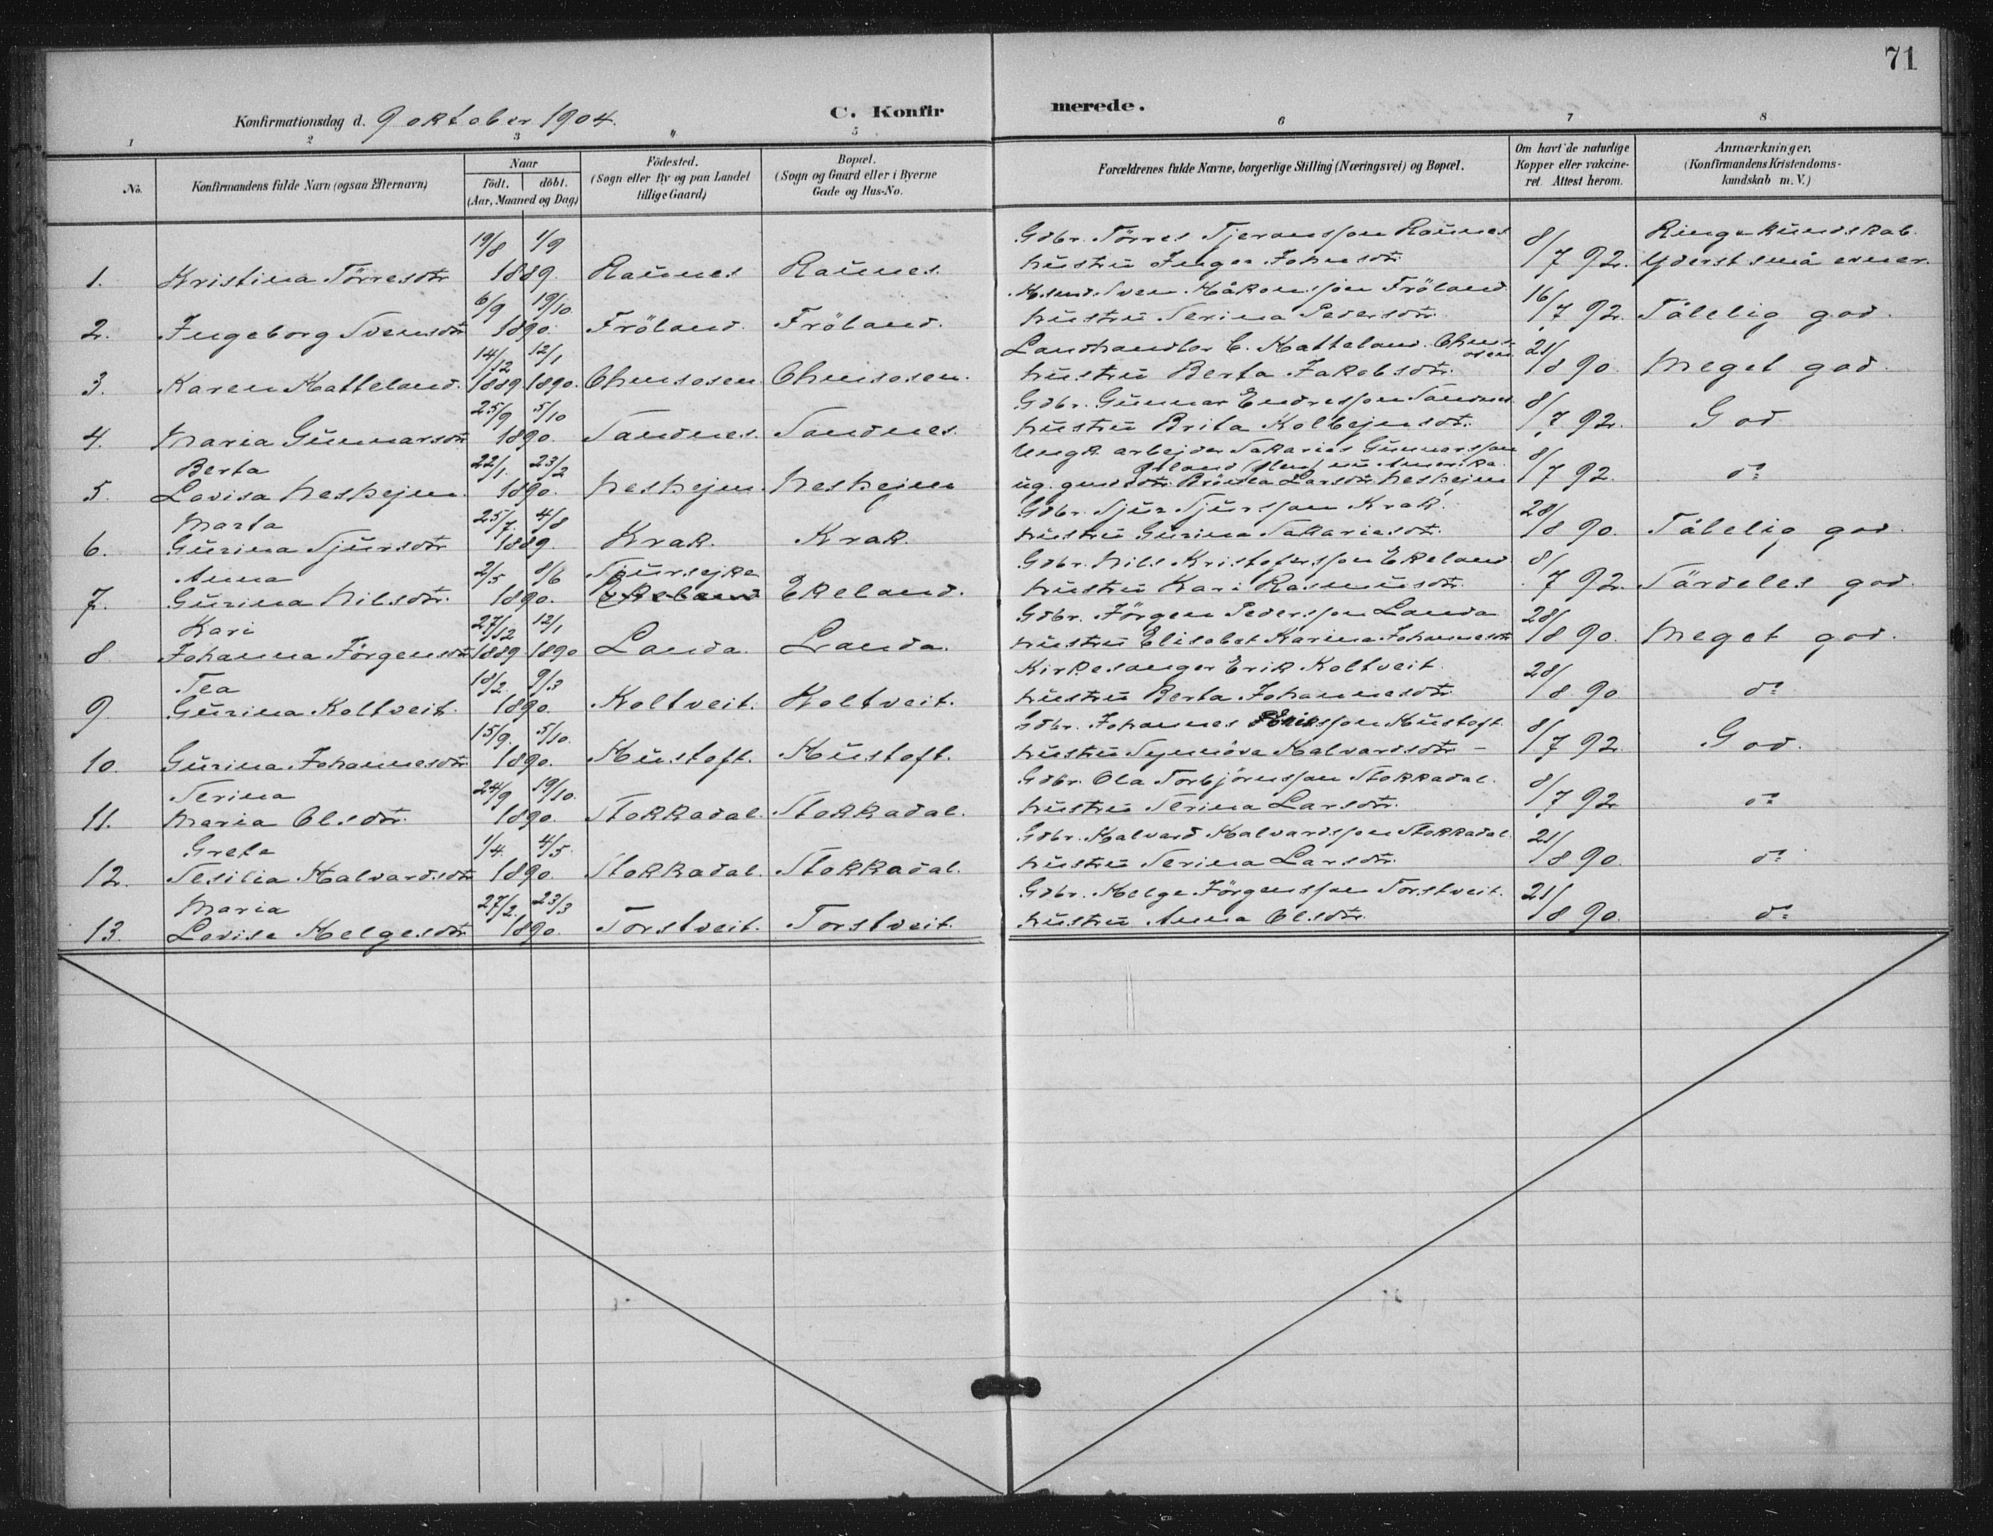 71
Konfirmationsdag d. 9 oktober 1904.
C. Konfirmerede.
1 2 3 " 5 6 7 8
No. Konfirmandens fulde Navn (ogsaa Efternavn) Naar født. døbt. (Aar, Maaned og Dag) Födested. (Sogn eller By og paa Landet tillige Gaard) Bopæl. (Sogn og Gaard eller i Byerne Gade og Hus-No. Forældrenes fulde Navne, borgerlige Stilling (Næringsvei) og Bopæl. Om havt de naturlige Kopper eller vakcineret. Attest herom. Anmærkninger. (Konfirmandens Kristendomskundskab m. V.)
19/8 1/9 Gdbr. Törres Tjeransson Raunes 8/7 92. Ringe kundskab.
1. Kristina Törresdtr 1889. Raunes Raunes. hustru Inger Johnsdtr. Yderst små evner.
6/9 19/10 Husmd. Sven Håkonsson Fröland 16/7 92.
2. Ingeborg Svensdtr 1890. Fröland. Fröland. hustru Serina Pedersdtr. Tålelig god.
14/12 12/1 Landhandler C. Hatteland. Ohmsosen 21/8 90.
3. Karen Hatteland. 1889 1890. Ohmsosen Ohmsosen. hustru Berta Jakobsdtr. Meget god.
25/9 5/10 Gdbr. Gunnar Endresson Sandnes 8/7 92.
4. Maria Gunnarsdtr 1890. Sandnes. Sandnes. hustru Brita Kolbejnsdtr. God
Berta 22/1. 23/2 Ungk. arbejder Sakarias Gunnarsson
Öland nu Amerika. 8/7 92.
5. Lovisa Neshejm. 1890. Neshejm. Neshejm ug. gmdsdtr. Larsdtr. Neshejm do
Marta 25/7. 4/8 Gdbr. Sjur Sjursson Krak. 28/8 90.
6. Gurina Sjursdtr 1889. Krak. Krak. hustru Gurina Sakariasdtr. Tålelig god.
Anna 2/5 8/6 Sjursejke Gdbr. Nils Kristofersson Ekeland 8/7 92.
7. Gurina Nilsdtr. 1890. Ekeland Ekeland. hustru Kari Rasmusdtr. Särdeles god.
Kari 27/12 12/1 Gdbr. Jörgen Pedersson Landa 28/8 90.
8. Johanna Jörgensdtr 1889 1890 Landa. Landa. hustru Elisabet Karina Johannesdtr Meget god.
Tea 10/2. 9/3 Kirkesanger Erik Koltveit. 28/8 90
9. Gurina Koltveit. 1890. Koltveit. Koltveit. hustru Berta Johannesdtr do
15/9. 5/10. Gdbr. Johannes Eriksson Hustoft. 8/7 92.
10. Gurina Johannesdtr 1890. Hustoft. Hustoft. hustru Synnöva Halvardsdtr – God.
Serina 24/9 19/10. Gdbr. Ola Torbjörnsson Stokkadal. 8/7 92
11. Maria Olsdtr. 1890. Stokkadal. Stokkadal. hustru Serina Larsdtr. do
Greta 1/4. 4/5. Gdbr. Halvard Halvardsson Stokkadal. 21/8 90.
12. Sesilia Halvardsdtr 1890. Stokkadal. Stokkadal. hustru Serina Larsdtr. do
Maria 27/2. 23/3 Gdbr. Helge Jörgensson Torstveit. 21/8 90.
13. Lovise Helgesdtr. 1890. Torstveit. Torstveit. hustru Anna Olsdtr. do